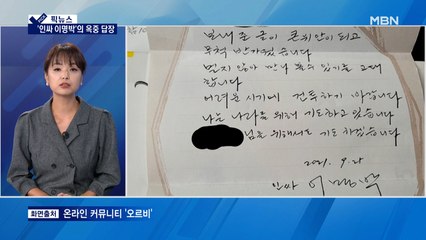 픽뉴스
'인싸 이명박'의 옥중 답장
MBN
보내 준 글이 큰 위안이 되고
무척 반가웠습니다
멀지 않아 만나 볼수 있기를 고대
합니다
어려운 시기에 건투하기 바랍니다
나는 나라를 위해 기도하고 있습니다
님을 위해서도 기도 하겠습니다
2021. 9.
인싸 이명박
화면출처 온라인 커뮤니티 '오르비'